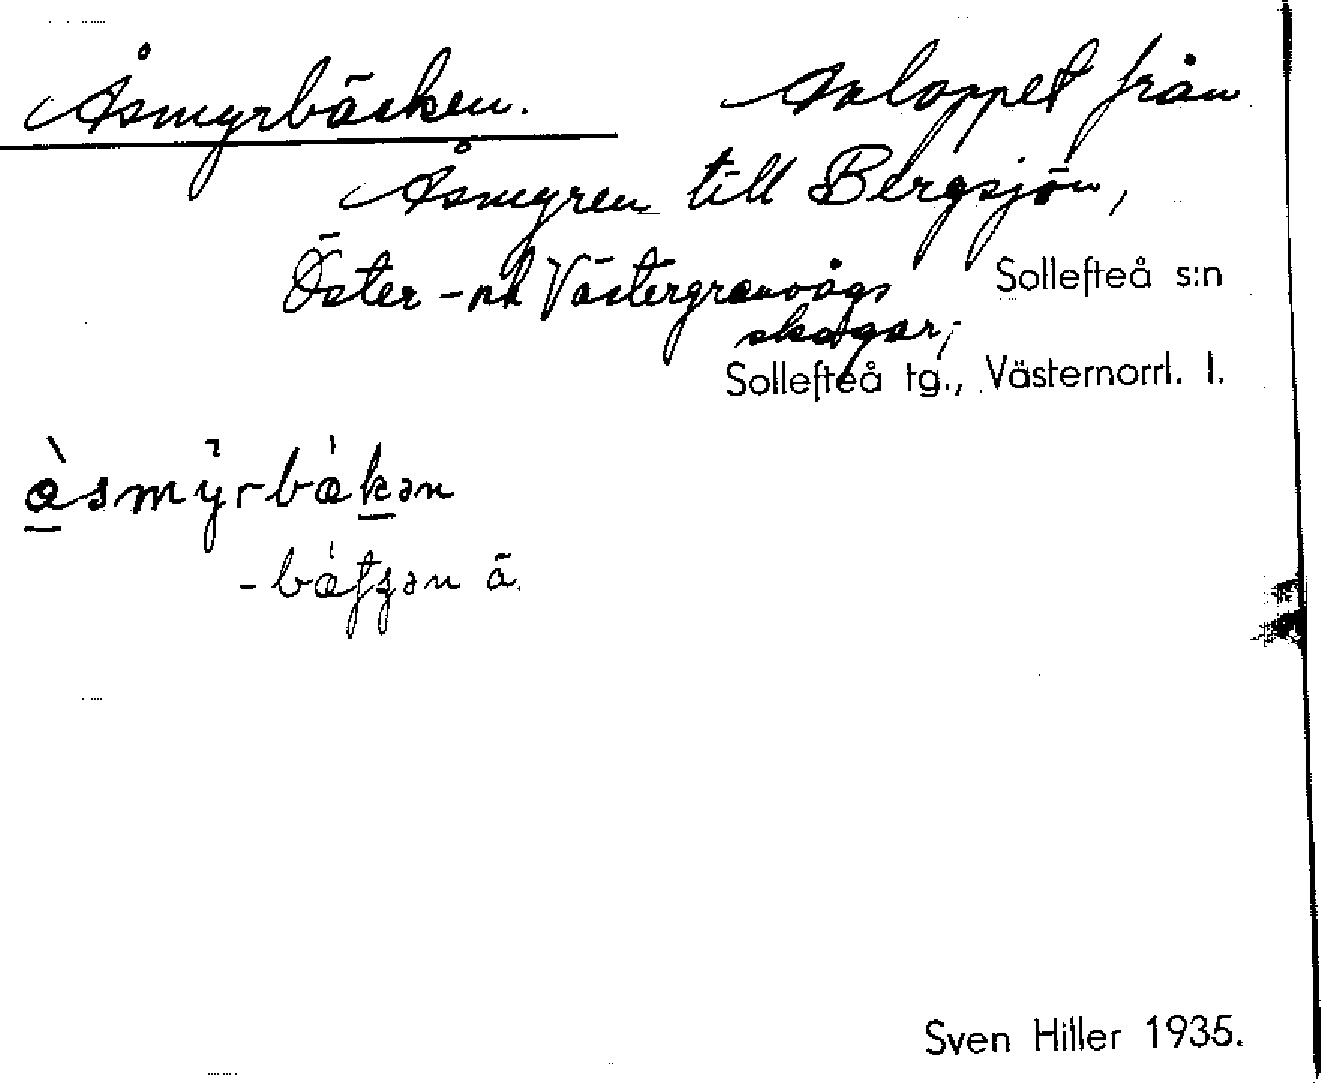 Åsmyrbäcken. Avloppet från
Åsmyren till Bergsjön,
Öster- och Västergranvågs
skogar;
Sollefteå s:n
Sollefteå tg., Västernorrl. l.
Sven Hiller 1935.